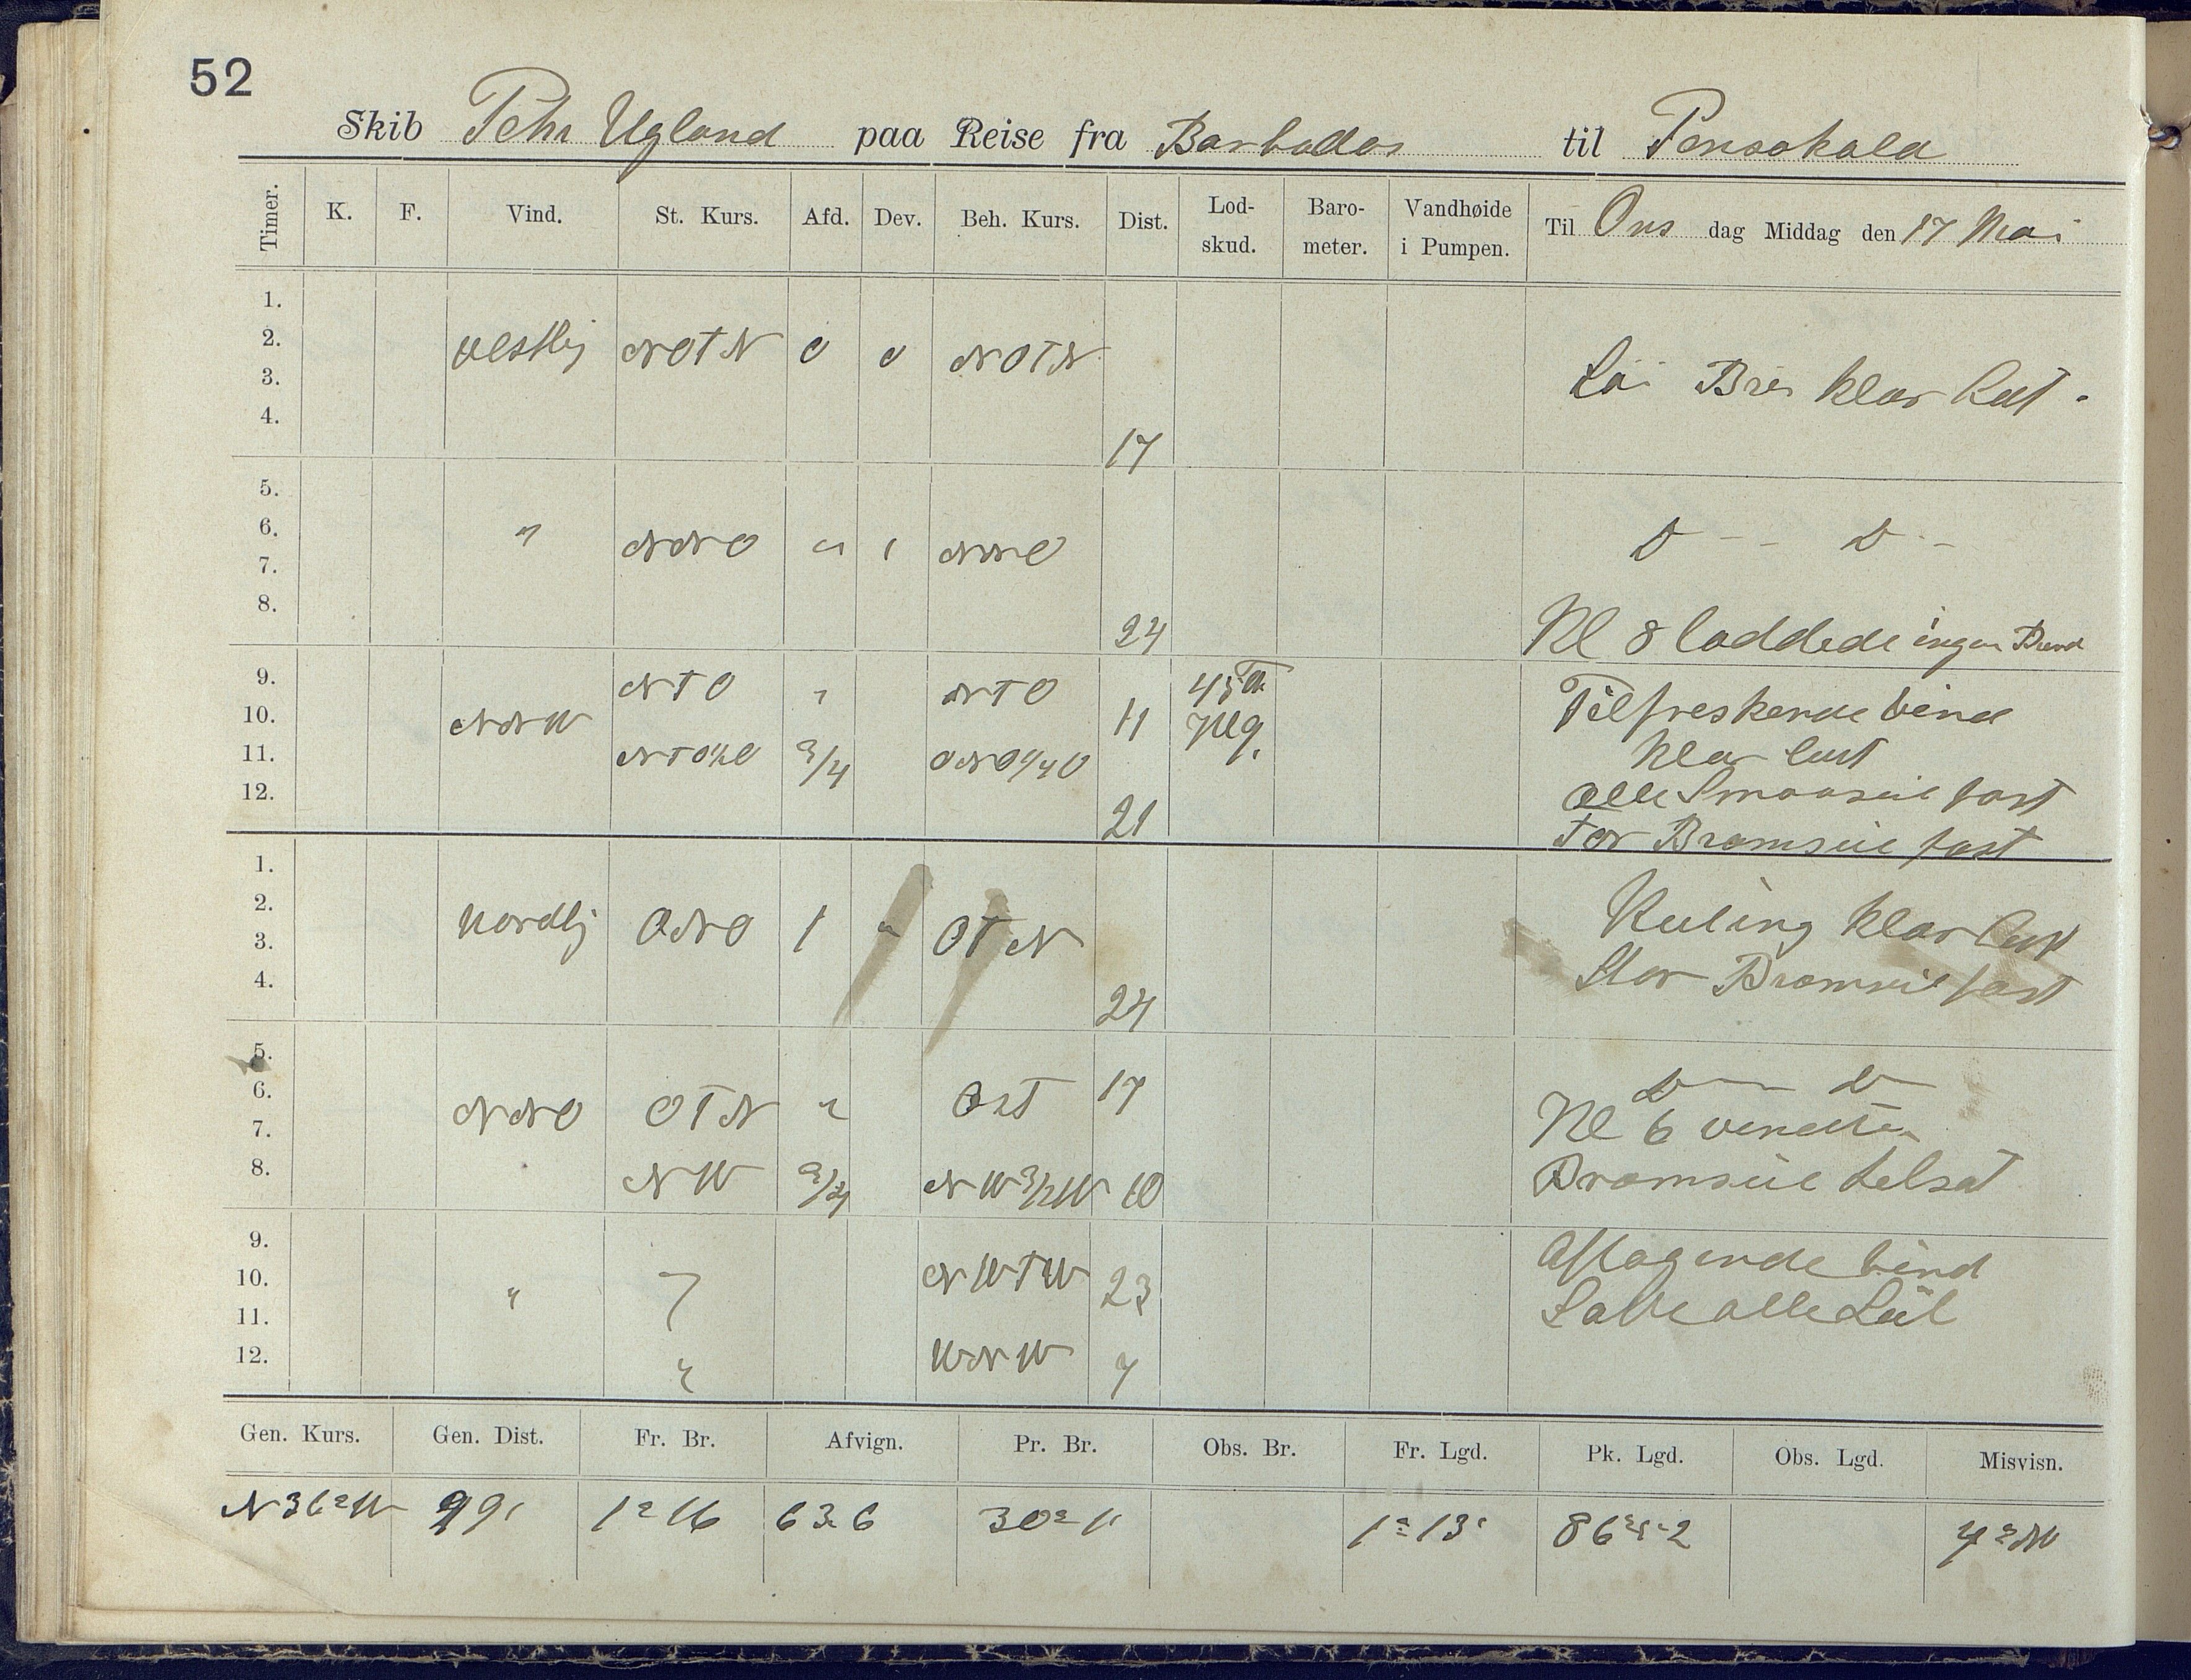 52
Skib Pehr Ugland paa Reise fra Barbados til Pensakala
Timer. K. F. Vind. St. Kurs. Afd. Dev. Beh. Kurs. Dist. Lod-skud. Baro-meter. Vandhøide i Pumpen. Til Ons dag Middag den 17 Mai
1.
2. vestlig NOTN 0 0 NOTN
3. Bris klar luft.
4. 17
5.
6. " NNO " NNO D -- D --
7.
8. 24 Kl 8 loddede ingen Bund
9. NTO " NTO 45 Tilfreskende vind
10. NNW 11 klar luft
11. 3/4 alle Smaaseil fast
12. 21 For Bramseil fast
1.
2. Nordlig ONO 1 " OTN Kuling klar luft
3. Stor Bramseil fast
4. 24
5. D -- D
6. NNO OTN " Ost 17 Kl 6 vendte
7.
8. NW 3/4 10 Bramseil telsat
9. Aftagende vind
10. " " NWTW 23 alle Seil
11.
12. " WNW 7
Gen. Kurs. Gen. Dist. Fr. Br. Afvign. Pr. Br. Obs. Br. Fr. Lgd. Pk. Lgd. Obs. Lgd. Misvisn.
N36°W 99' 1°16 636 30°11 1°13' 4°W